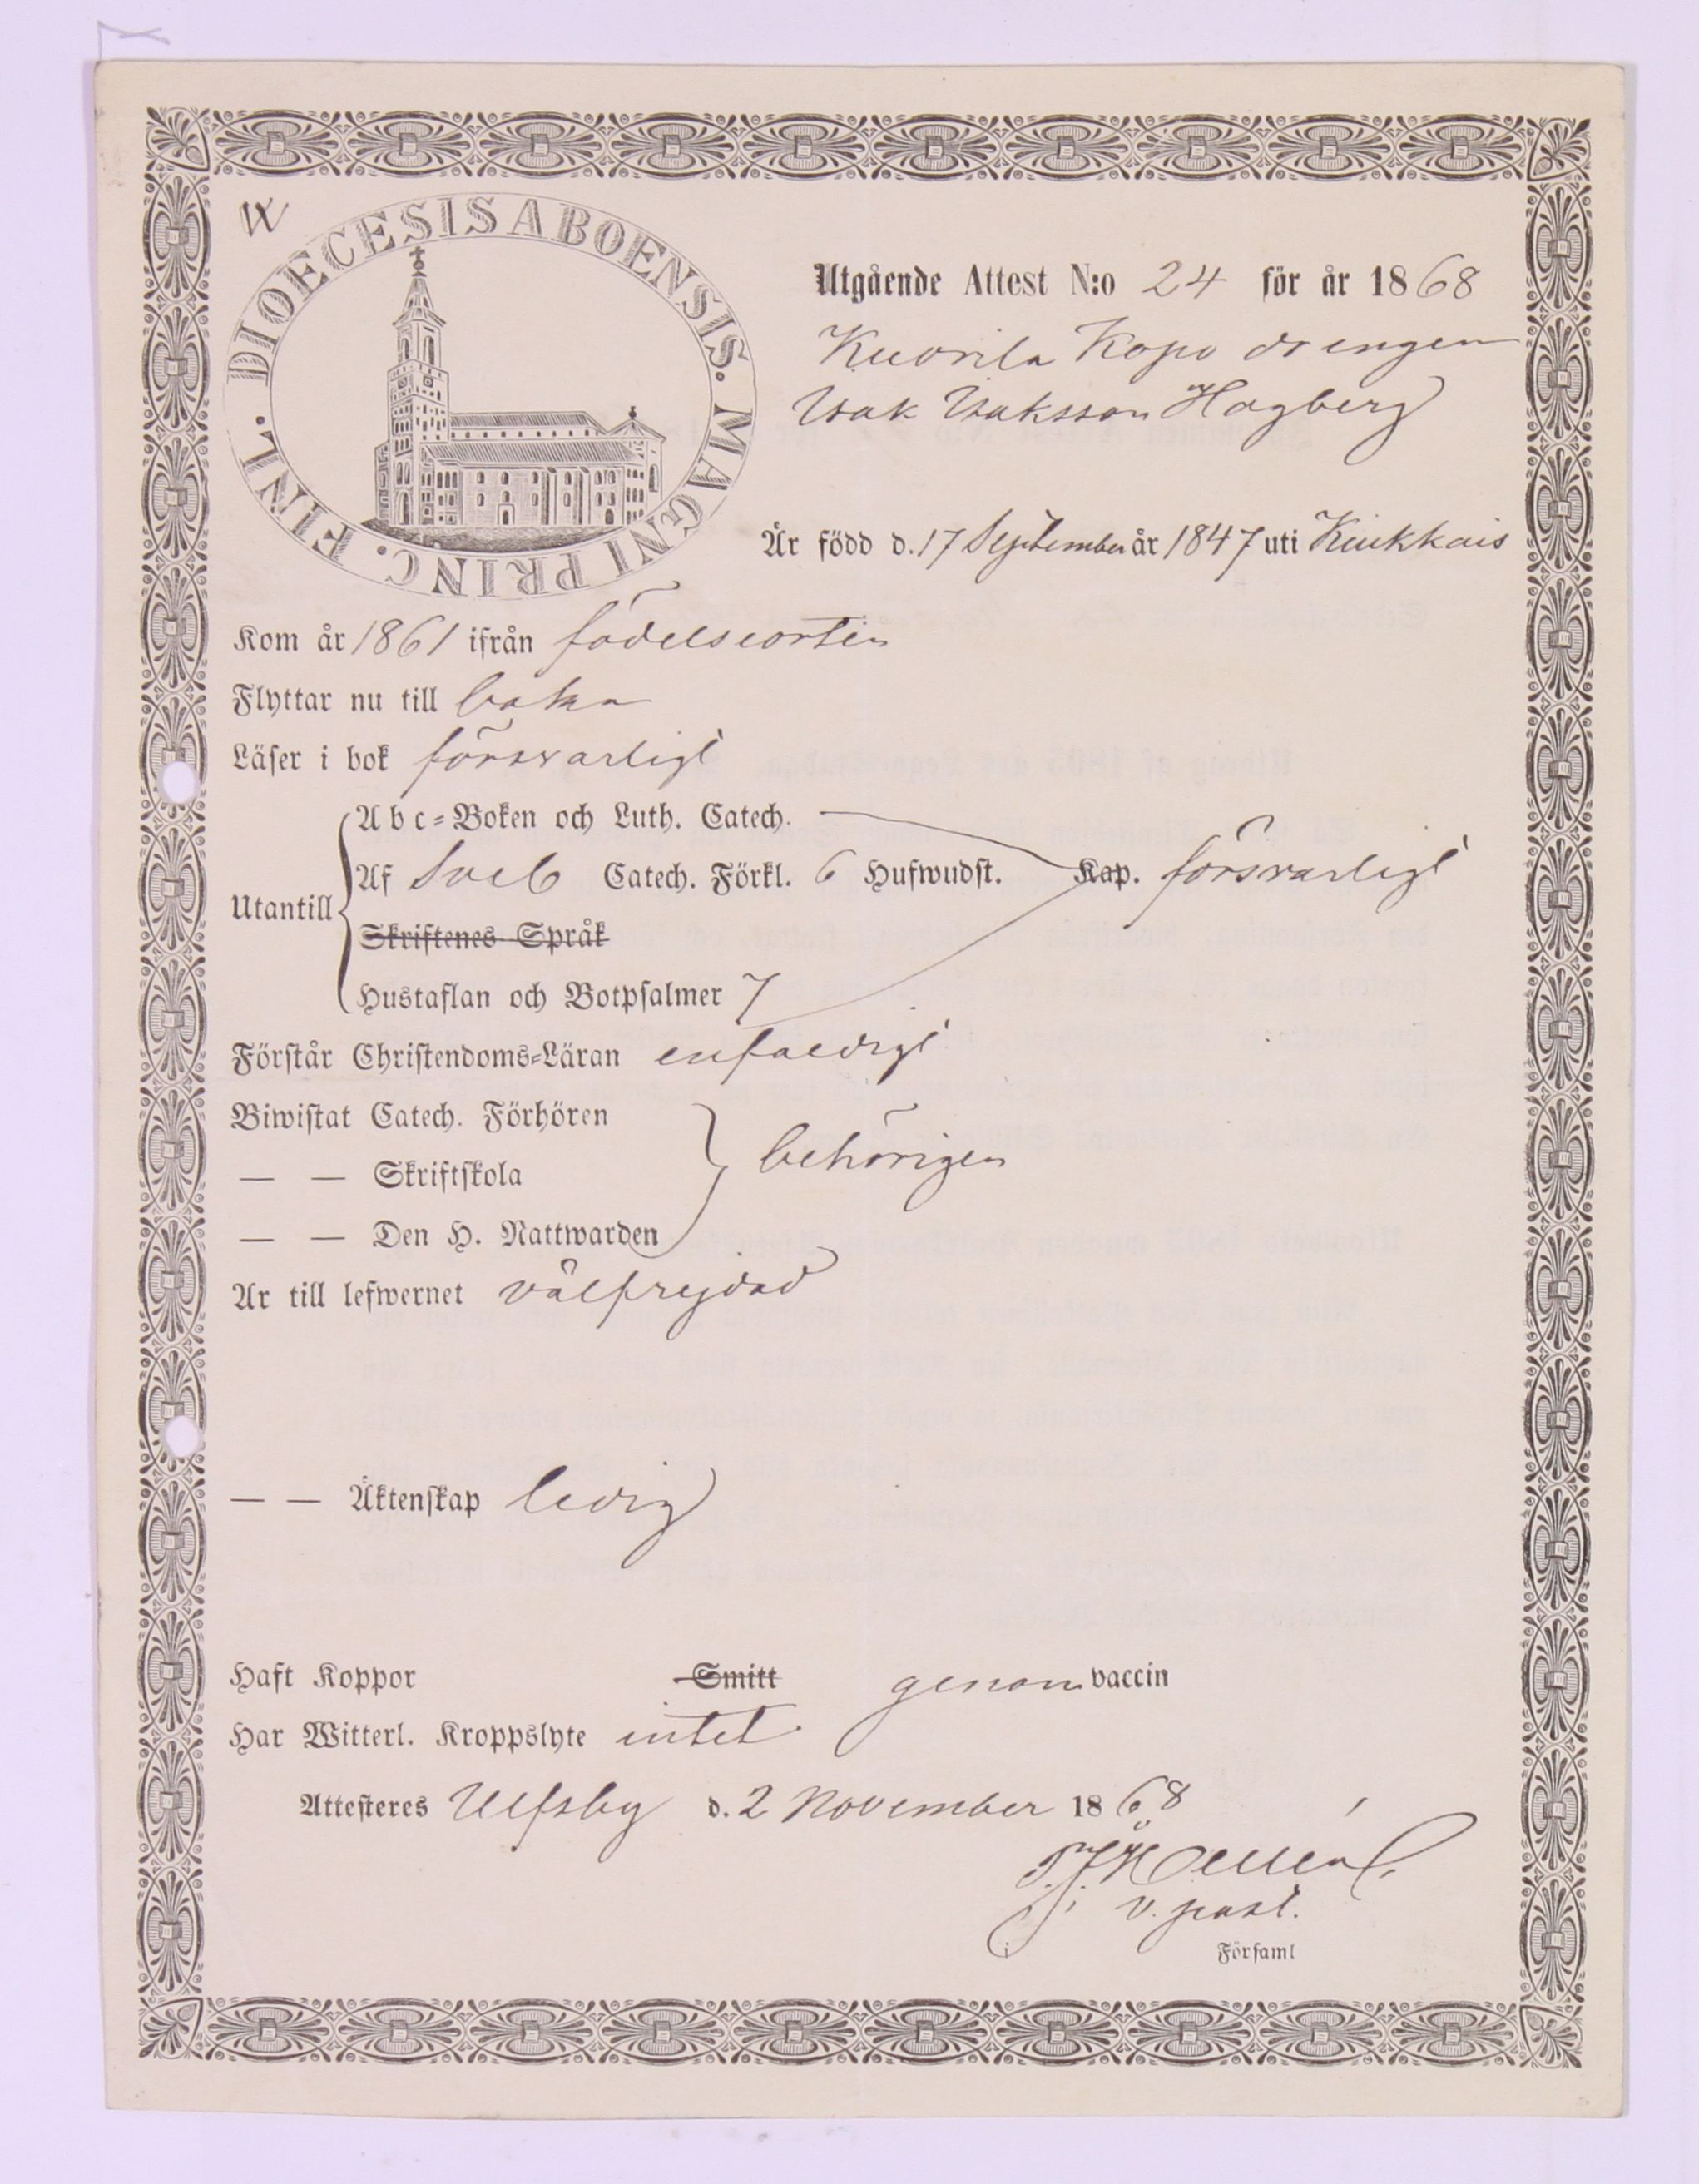 W
DIOECESIS ABOENSIS. MAGNI PRINC. FINL.
Utgående Attest N:o 24 för år 1868
Kuorila Kopo drengen
Isak Isaksson Hagberg
Är född d. 17 September år 1847 uti Kiukkais
Kom år 1861 ifrån födelseorten
Flyttar nu till baka
Läser i bok försvarligt
Utantill
Abc-Boken och Luth. Catech.
Af Sveb Catech. Förkl. 6 Hufwudst. Kap. försvarligt
Skriftenes Språk
Hustaflan och Botpsalmer 7
Förstår Christendoms-Läran enfaldigt
Biwistat Catech. Förhören
— — Skriftskola behörigen
— — Den H. Nattwarden
Är till lefwernet välfrejdad
— — Äktenskap ledig
Haft Koppor Smitt genom vaccin
Har Witterl. Kroppslyte intet
Attesteres Ulfsby d. 2 November 1868
v. past.
Församl